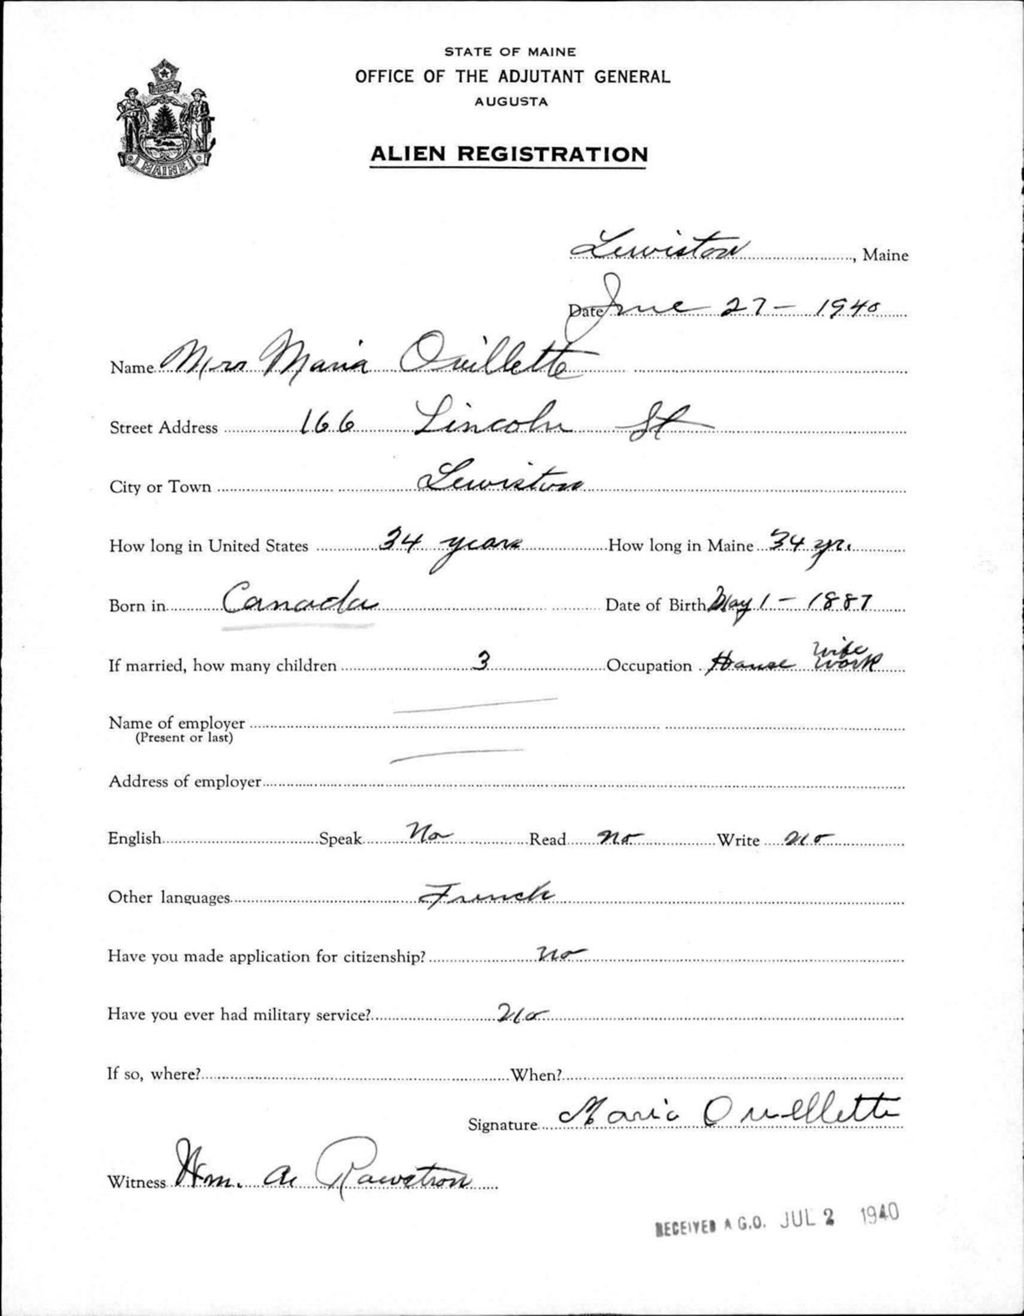 STATE OF MAINE
OFFICE OF THE ADJUTANT GENERAL
AUGUSTA
ALIEN REGISTRATION
MAINE
Lewiston, Maine
Date June 27 - 1940
Name Mrs Maria Ouillette
Street Address 166 Lincoln St
City or Town Lewiston
How long in United States 34 years How long in Maine 34 yr.
Born in Canada Date of Birth May 1 - 1887
If married, how many children 3 Occupation House wife work
Name of employer
(Present or last)
Address of employer
English Speak No Read no Write no
Other languages French
Have you made application for citizenship? no
Have you ever had military service? No
If so, where? When?
Signature Maria Ouellette
Witness Wm. A. Rawstron
RECEIVED A.G.O. JUL 2 1940